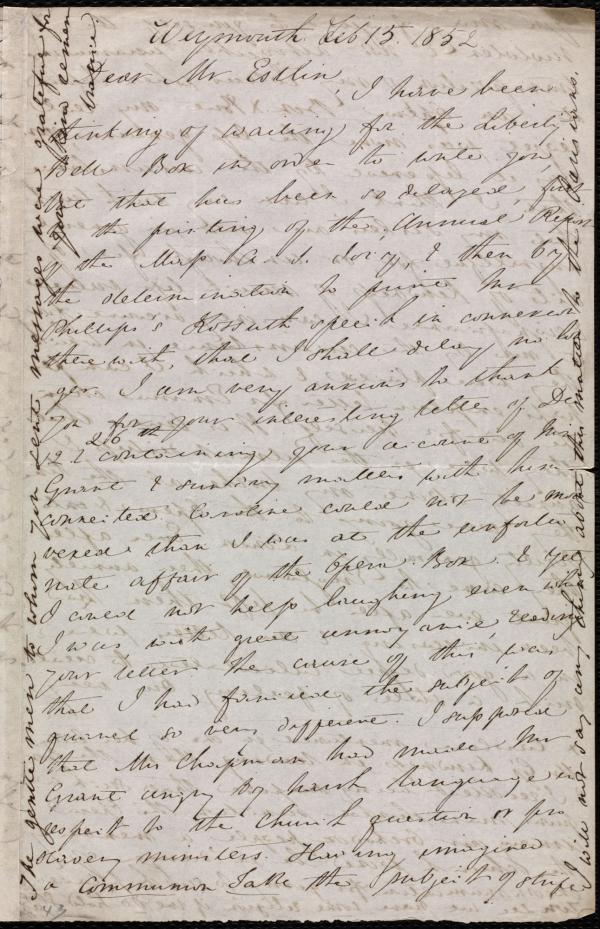 Weymouth Feb 15. 1852
Dear Mr Estlin,
I have been
thinking of waiting for the Liberty
Bell Box in order to write you,
but that has been so delayed, first
the printing of the Annual Report
of the Mass A. S. Soc'y, & then by
the determination to print Mr
Phillips's Kossuth speech in connexion
therewith, that I shall delay no lon
ger. I am very anxious to thank
you for your interesting letter of Dec
12 & 26th containing your account of Mr
Grant & sundry matters with him
connected. Caroline could not be more
vexed than I was at the unfortu
nate affair of the Opera Box. & yet
I could not help laughing even while
I was, with great annoyance, reading
your letter. The cause of this was
that I had fancied the subject of
quarrel so very different. I supposed
that Mrs Chapman had made Mr
Grant angry by harsh language in
respect to the Church question or pro
slavery ministers. Having imagined
a Communion Table the subject of strife
The gentlemen to whom you sent messages were grateful for
your kind remem
brance
I will not say any thing about this matter to the Parisians.